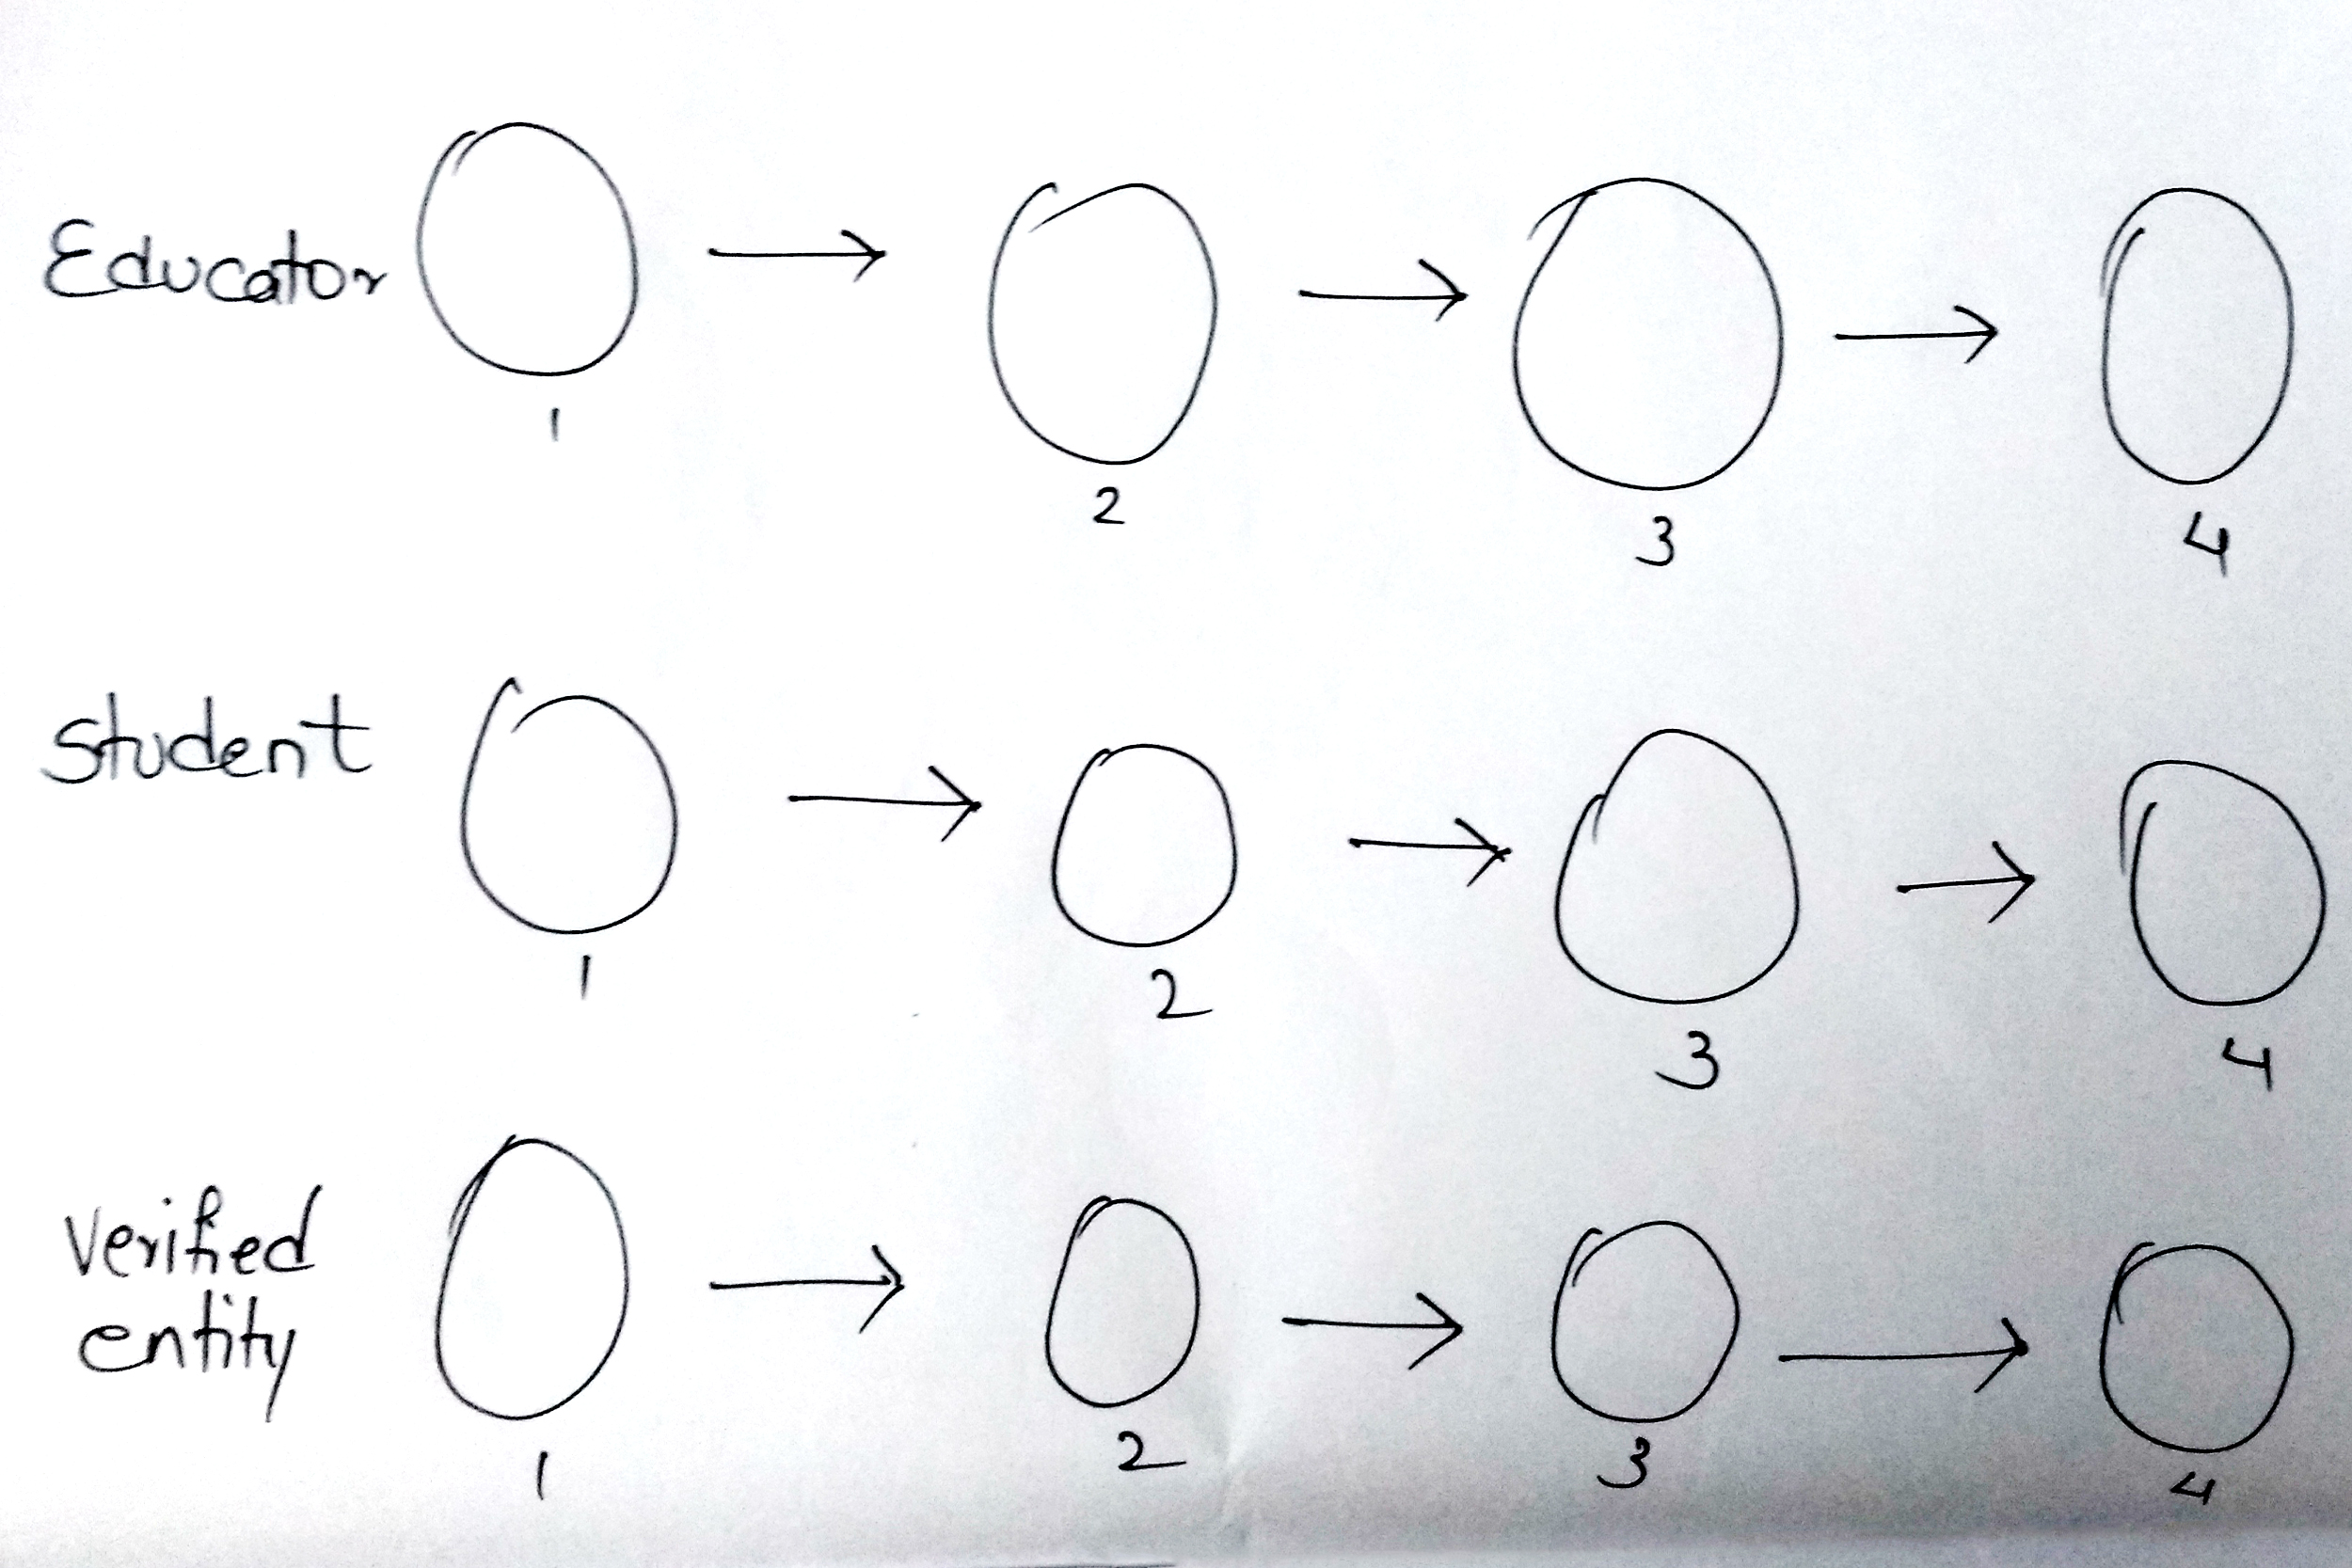 Educator
1
2
3
4
Student
1
2
3
4
Verified
entity
1
2
3
4